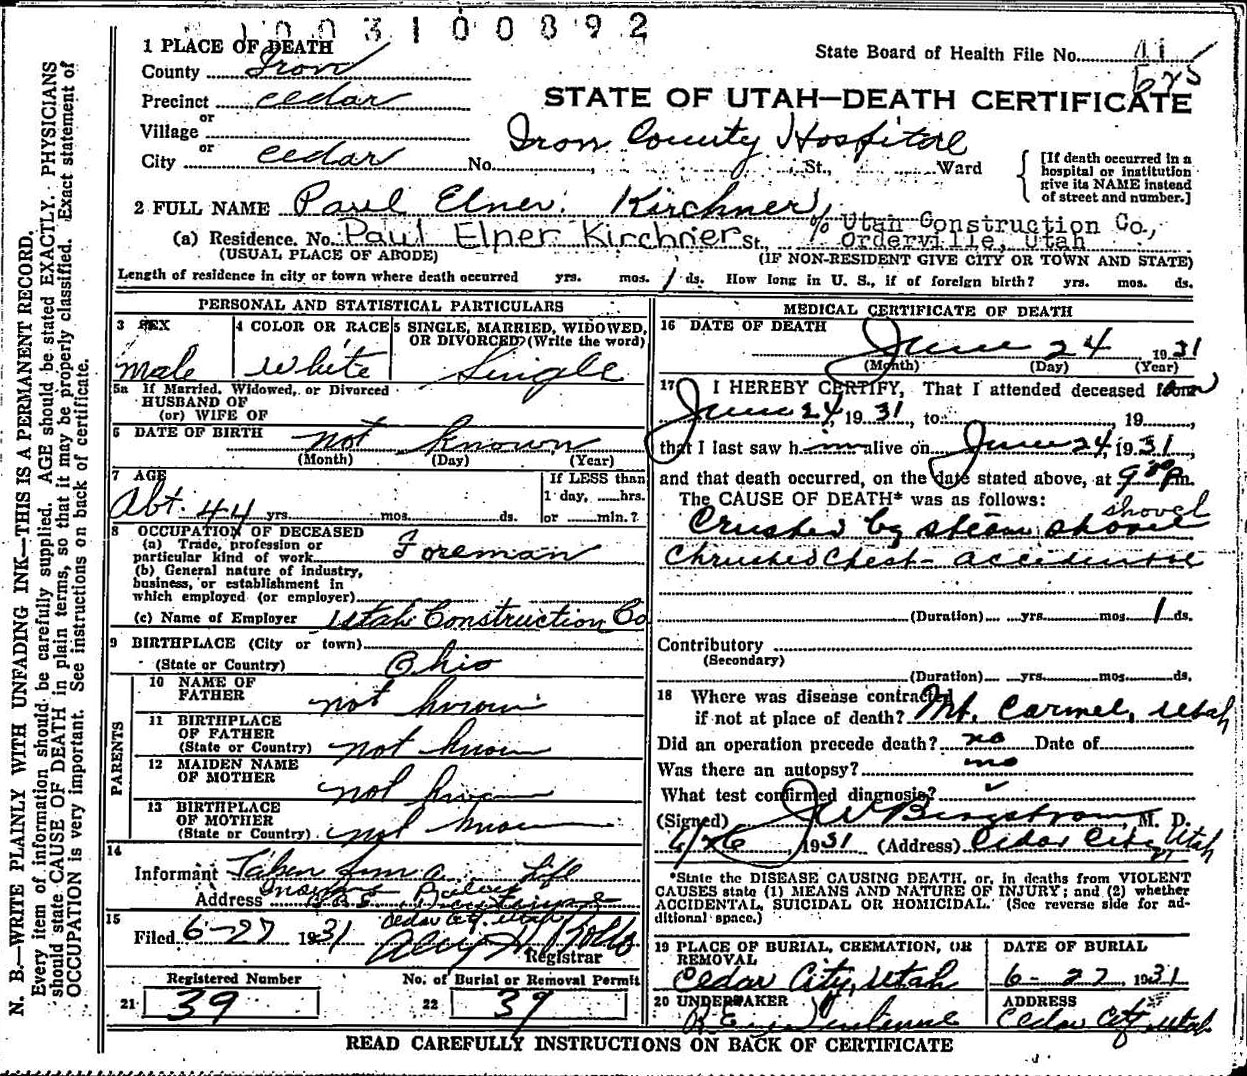 1003100892
1 PLACE OF DEATH
State Board of Health File No. 11
625
County Iron
Precinct Cedar
STATE OF UTAH—DEATH CERTIFICATE
or
Village
or
Iron County Hospital
City Cedar No. St., Ward
[If death occurred in a hospital or institution give its NAME instead of street and number.]
2 FULL NAME Paul Elner Kirchner
% Utah Construction Co.,
(a) Residence. No. Paul Elner Kirchner St., Orderville, Utah
(USUAL PLACE OF ABODE) (IF NON-RESIDENT GIVE CITY OR TOWN AND STATE)
Length of residence in city or town where death occurred yrs. mos. 1 ds. How long in U. S., if of foreign birth? yrs. mos. ds.
PERSONAL AND STATISTICAL PARTICULARS
3 SEX
male
4 COLOR OR RACE
White
5 SINGLE, MARRIED, WIDOWED, OR DIVORCED (Write the word)
Single
5a If Married, Widowed, or Divorced
HUSBAND OF
(or) WIFE OF
6 DATE OF BIRTH not known
(Month) (Day) (Year)
7 AGE
Abt. 44 yrs. mos. ds.
If LESS than
1 day, hrs.
or min.?
8 OCCUPATION OF DECEASED
(a) Trade, profession or
particular kind of work Foreman
(b) General nature of industry,
business, or establishment in
which employed (or employer)
(c) Name of Employer Utah Construction Co
9 BIRTHPLACE (City or town)
(State or Country) Ohio
PARENTS
10 NAME OF
FATHER not known
11 BIRTHPLACE
OF FATHER
(State or Country) not known
12 MAIDEN NAME
OF MOTHER not known
13 BIRTHPLACE
OF MOTHER
(State or Country) not know
14
Informant Taken from a Life
Address
Cedar City, Utah
15
Filed 6-27 1931
Registrar
Registered Number
21 39
No. of Burial or Removal Permit
22 39
MEDICAL CERTIFICATE OF DEATH
16 DATE OF DEATH
June 24 1931
(Month) (Day) (Year)
17 I HEREBY CERTIFY, That I attended deceased from
June 24, 1931, to 19
that I last saw him alive on June 24, 1931,
and that death occurred, on the date stated above, at 9 30 Pm.
The CAUSE OF DEATH* was as follows:
shovel
Crushed by steam shovel
Chrushed Chest - accidental
(Duration) yrs. mos. 1 ds.
Contributory
(Secondary)
(Duration) yrs. mos. ds.
18 Where was disease contracted
if not at place of death? Mt. Carmel, Utah
Did an operation precede death? no Date of
Was there an autopsy? no
What test confirmed diagnosis?
(Signed) J W Bergstrom, M. D.
6/26 1931 (Address) Cedar City, Utah
*State the DISEASE CAUSING DEATH, or, in deaths from VIOLENT
CAUSES state (1) MEANS AND NATURE OF INJURY; and (2) whether
ACCIDENTAL, SUICIDAL OR HOMICIDAL. (See reverse side for ad-
ditional space.)
19 PLACE OF BURIAL, CREMATION, OR
REMOVAL
Cedar City, Utah
DATE OF BURIAL
6-27 1931
20 UNDERTAKER
ADDRESS
Cedar City, Utah
READ CAREFULLY INSTRUCTIONS ON BACK OF CERTIFICATE
N. B.—WRITE PLAINLY WITH UNFADING INK—THIS IS A PERMANENT RECORD.
Every item of information should be carefully supplied. AGE should be stated EXACTLY. PHYSICIANS
should state CAUSE OF DEATH in plain terms, so that it may be properly classified. Exact statement of
OCCUPATION is very important. See instructions on back of certificate.